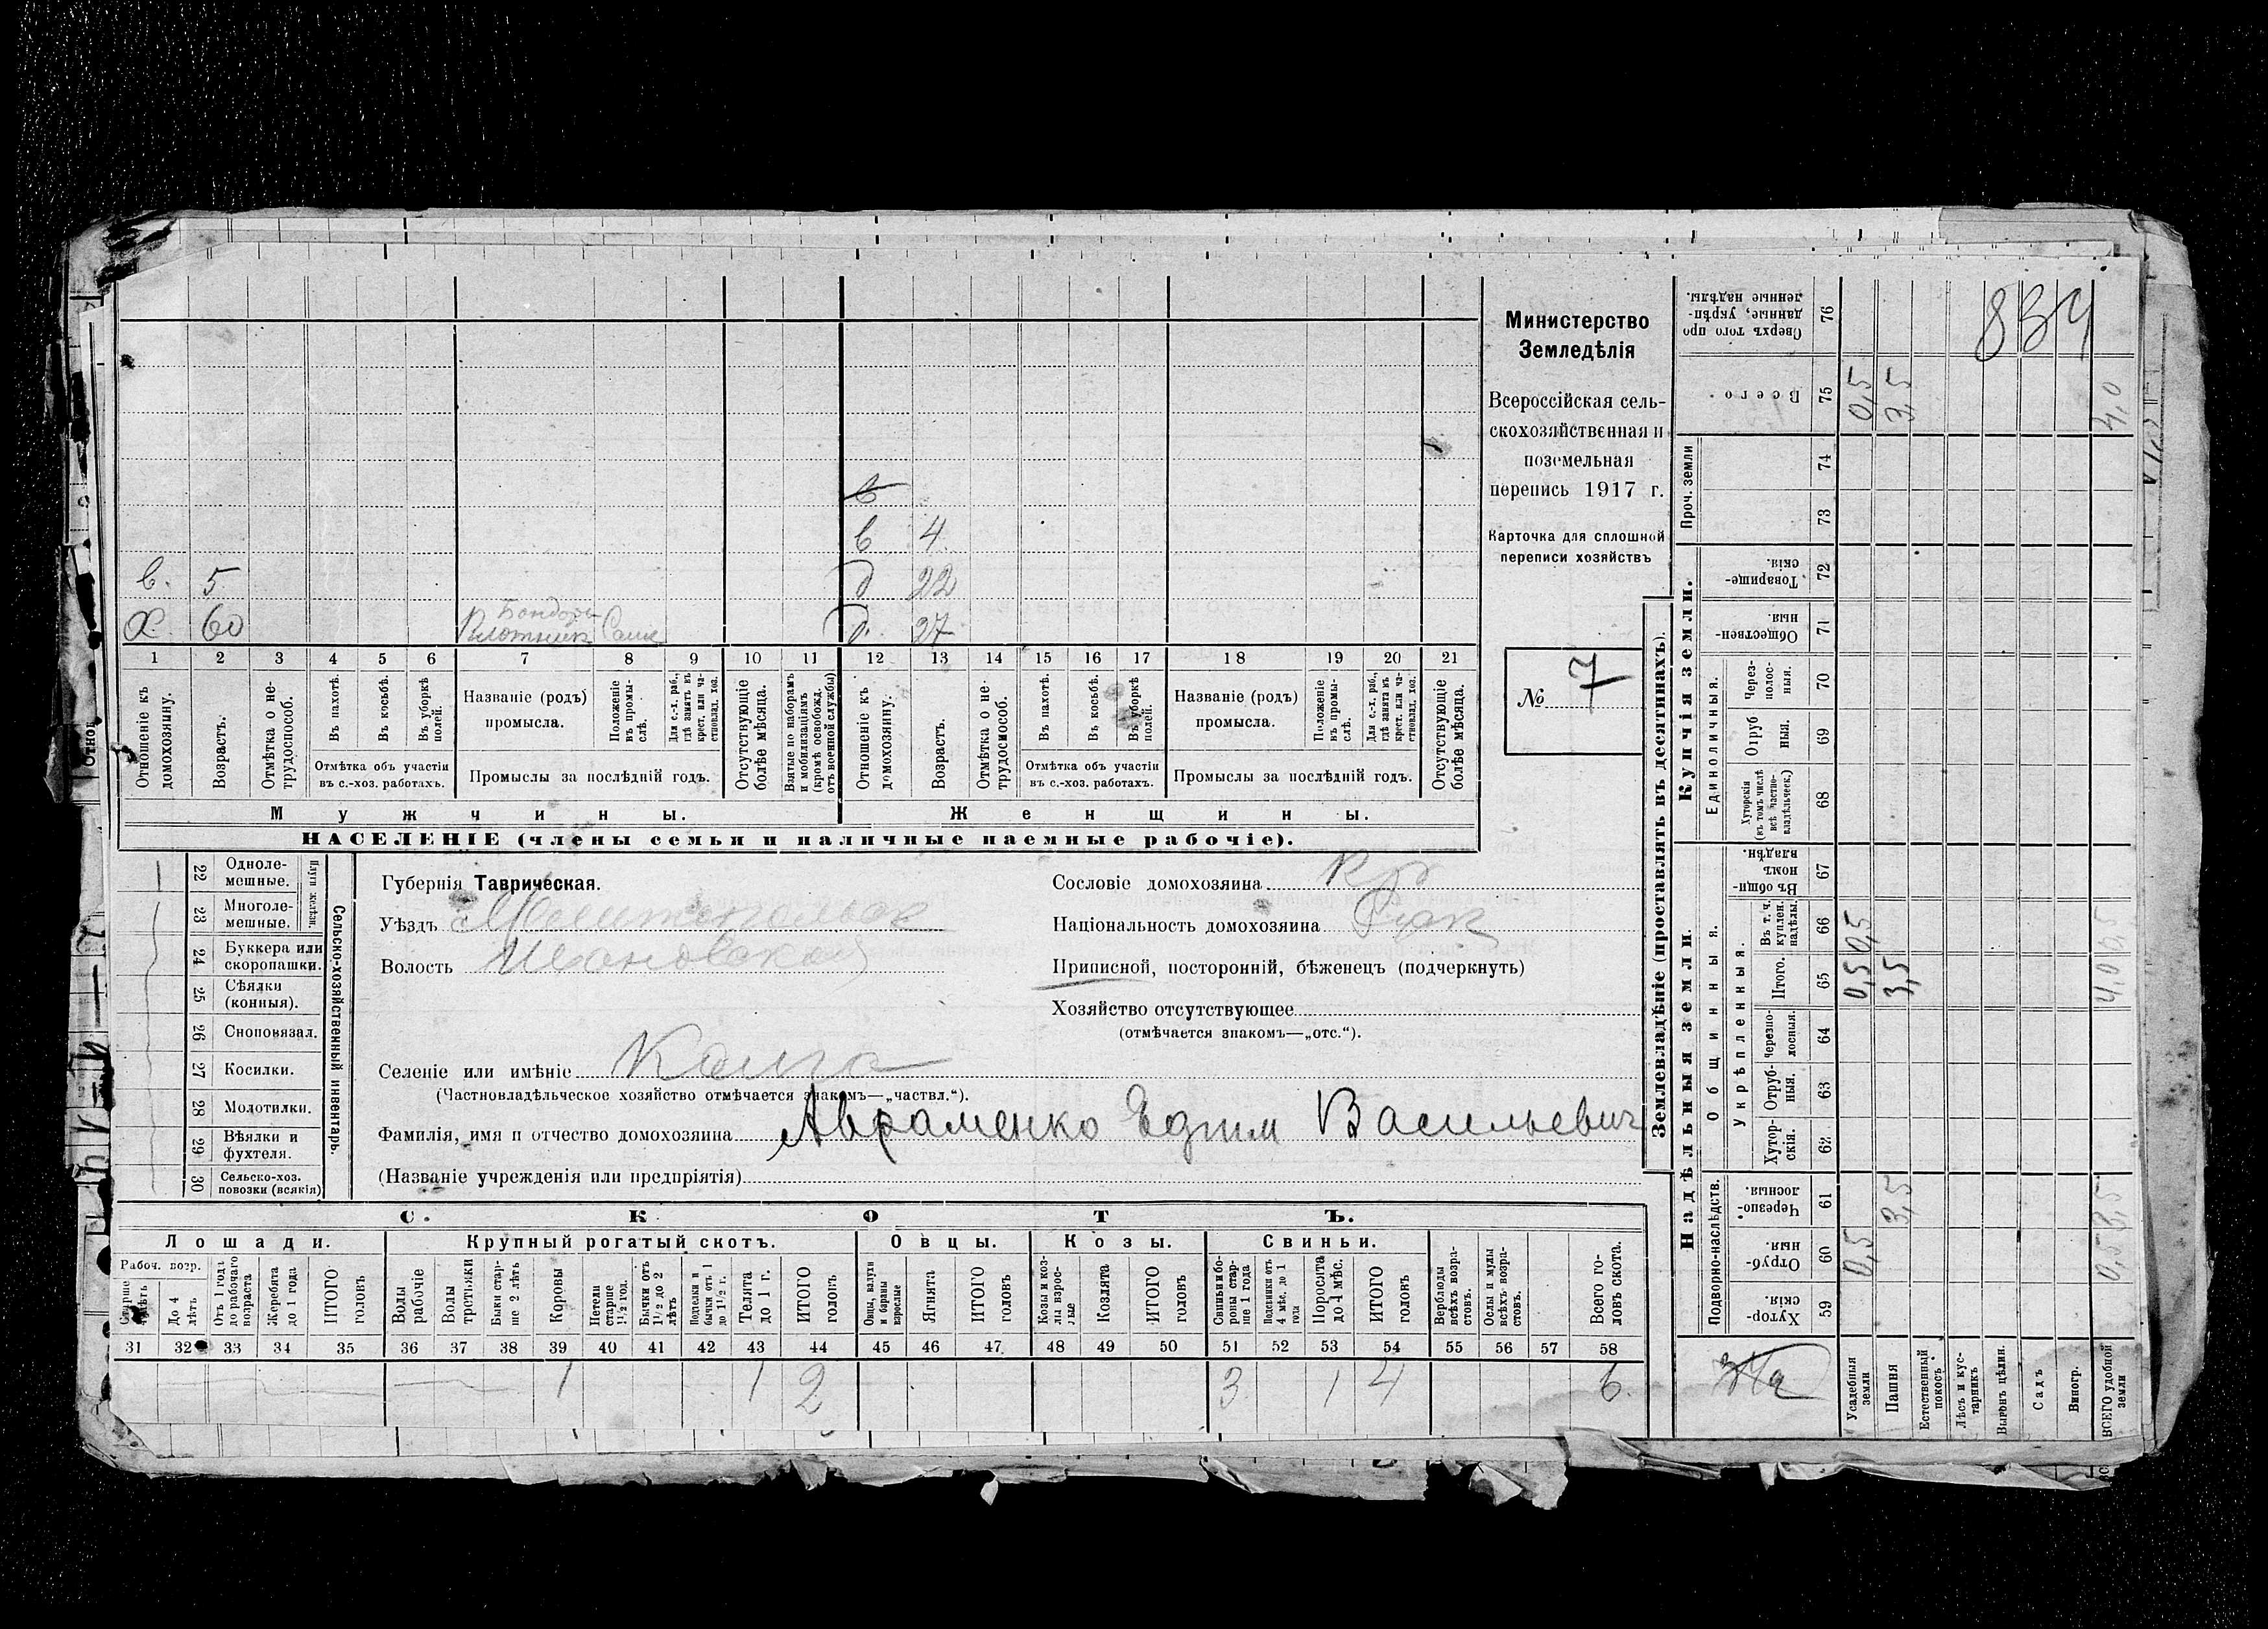 Министерство
Земледѣлія
Всероссійская сель-
скохозяйственная и
поземельная
перепись 1917 г.
Карточка для сплошной
переписи хозяйствъ
№ 7
834
в
в 4
в. 5 д 22
Бондарь
Х 60 Плотник Сам д. 27
1 2 3 4 5 6 7 8 9 10 11 12 13 14 15 16 17 18 19 20 21
Отношеніе къ домохозяину.
Возрастъ.
Отмѣтка о не-трудоспособ.
Въ пахотѣ.
Въ косьбѣ.
Въ уборкѣ полей.
Отмѣтка объ участіи
въ с.-хоз. работахъ.
Названіе (родъ)
промысла.
Положеніе въ промы-слѣ.
Для с.-х. раб., гдѣ занятъ въ крест. или ча-стновлад. хоз.
Промыслы за послѣдній годъ.
Отсутствующіе болѣе мѣсяца.
Взятые по наборамъ и мобилизаціямъ (кромѣ освобожд. отъ военной службы)
Отношеніе къ домохозяину.
Возрастъ.
Отмѣтка о не-трудоспособ.
Въ пахотѣ.
Въ косьбѣ.
Въ уборкѣ полей.
Отмѣтка объ участіи
въ с.-хоз. работахъ.
Названіе (родъ)
промысла.
Положеніе въ промы-слѣ.
Для с.-х. раб., гдѣ занята въ крест. или ча-стновлад. хоз.
Промыслы за послѣдній годъ.
Отсутствующіе болѣе мѣсяца.
Мужчины. Женщины.
НАСЕЛЕНІЕ (члены семьи и наличные наемные рабочіе).
Сельско-хозяйственный инвентарь.
Плуги желѣзн.
22 Однолемешные.
23 Многолемешные.
24 Буккера или скоропашки.
25 Сѣялки (конныя).
26 Сноповязал.
27 Косилки.
28 Молотилки.
29 Вѣялки и фухтеля.
30 Сельско-хоз. повозки (всякія)
Губернія Таврическая.
Уѣздъ Мелитопольск
Волость Ивановской
Сословіе домохозяина кр
Національность домохозяина
Приписной, посторонній, бѣженецъ (подчеркнуть)
Хозяйство отсутствующее
(отмѣчается знакомъ—„отс.“).
Селеніе или имѣніе
(Частновладѣльческое хозяйство отмѣчается знакомъ—„частвл.“).
Фамилія, имя и отчество домохозяина Авраменко Василь­евич
(Названіе учрежденія или предпріятія)
СКОТЪ.
Лошади. Крупный рогатый скотъ. Овцы. Козы. Свиньи.
Рабоч. возр.
Старше 4 лѣтъ
До 4 лѣтъ
Отъ 1 года до рабочаго возраста
Жеребята до 1 года
ИТОГО головъ
Волы рабочіе
Волы третьяки
Быки стар-ше 2 лѣтъ
Коровы
Нетели старше 1½ год.
Бычки отъ 1½ до 2 лѣтъ
Подтелки и бычки отъ 1 до 1½ г.
Телята до 1 г.
ИТОГО головъ
Овцы, валухи и бараны взрослые
Ягнята
ИТОГО головъ
Козы и коз-лы взрос-лые
Козлята
ИТОГО головъ
Свиньи и бо-ровы стар-ше 1 года
Подсвинки отъ 4 мѣс. до 1 года
Поросята до 4 мѣс.
ИТОГО головъ
Верблюды всѣхъ возра-стовъ.
Ослы и мулы всѣхъ возра-стовъ.
Всего го-ловъ скота.
31 32 33 34 35 36 37 38 39 40 41 42 43 44 45 46 47 48 49 50 51 52 53 54 55 56 57 58
1 1 2 3 1 4 6
Землевладѣніе (проставлять въ десятинахъ).
Купчія земли.
Надѣльныя земли.
Сверхъ того про-данные, укрѣп-ленные надѣлы. 76
Всего. 75 0,5 3,5 4,0
Проч. земли 74 73
Товарище-скія. 72
Обществен-ныя. 71
Единоличныя.
Через-полос-ныя. 70
Отруб-ныя. 69
Хуторскія (въ томъ числѣ всѣ частно-владѣльческ.) 68
Общинныя.
Въ общин-номъ владѣн. 67
Укрѣпленныя.
Въ т. ч. куплен. надѣлы. 66 0,5 0,5
Итого. 65 0,5 3,5 4,0
Черезпо-лосныя. 64
Отруб-ныя. 63
Хутор-скія. 62
Подворно-наслѣдств.
Черезпо-лосныя. 61 3,5 3,5
Отруб-ныя. 60 0,5 0,5
Хутор-скія. 59
Усадебныя земли
Пашня
Естественный покосъ
Лѣсъ и кус-тарникъ
Выгонъ цѣлин.
Садъ
Виногр.
ВСЕГО удобной земли